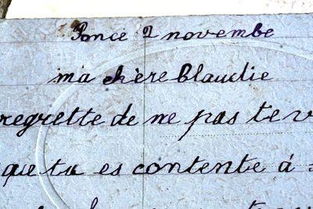 Ponce 2 novembe
ma chère Claudie
regrette de ne pas te v
que tu es contente à